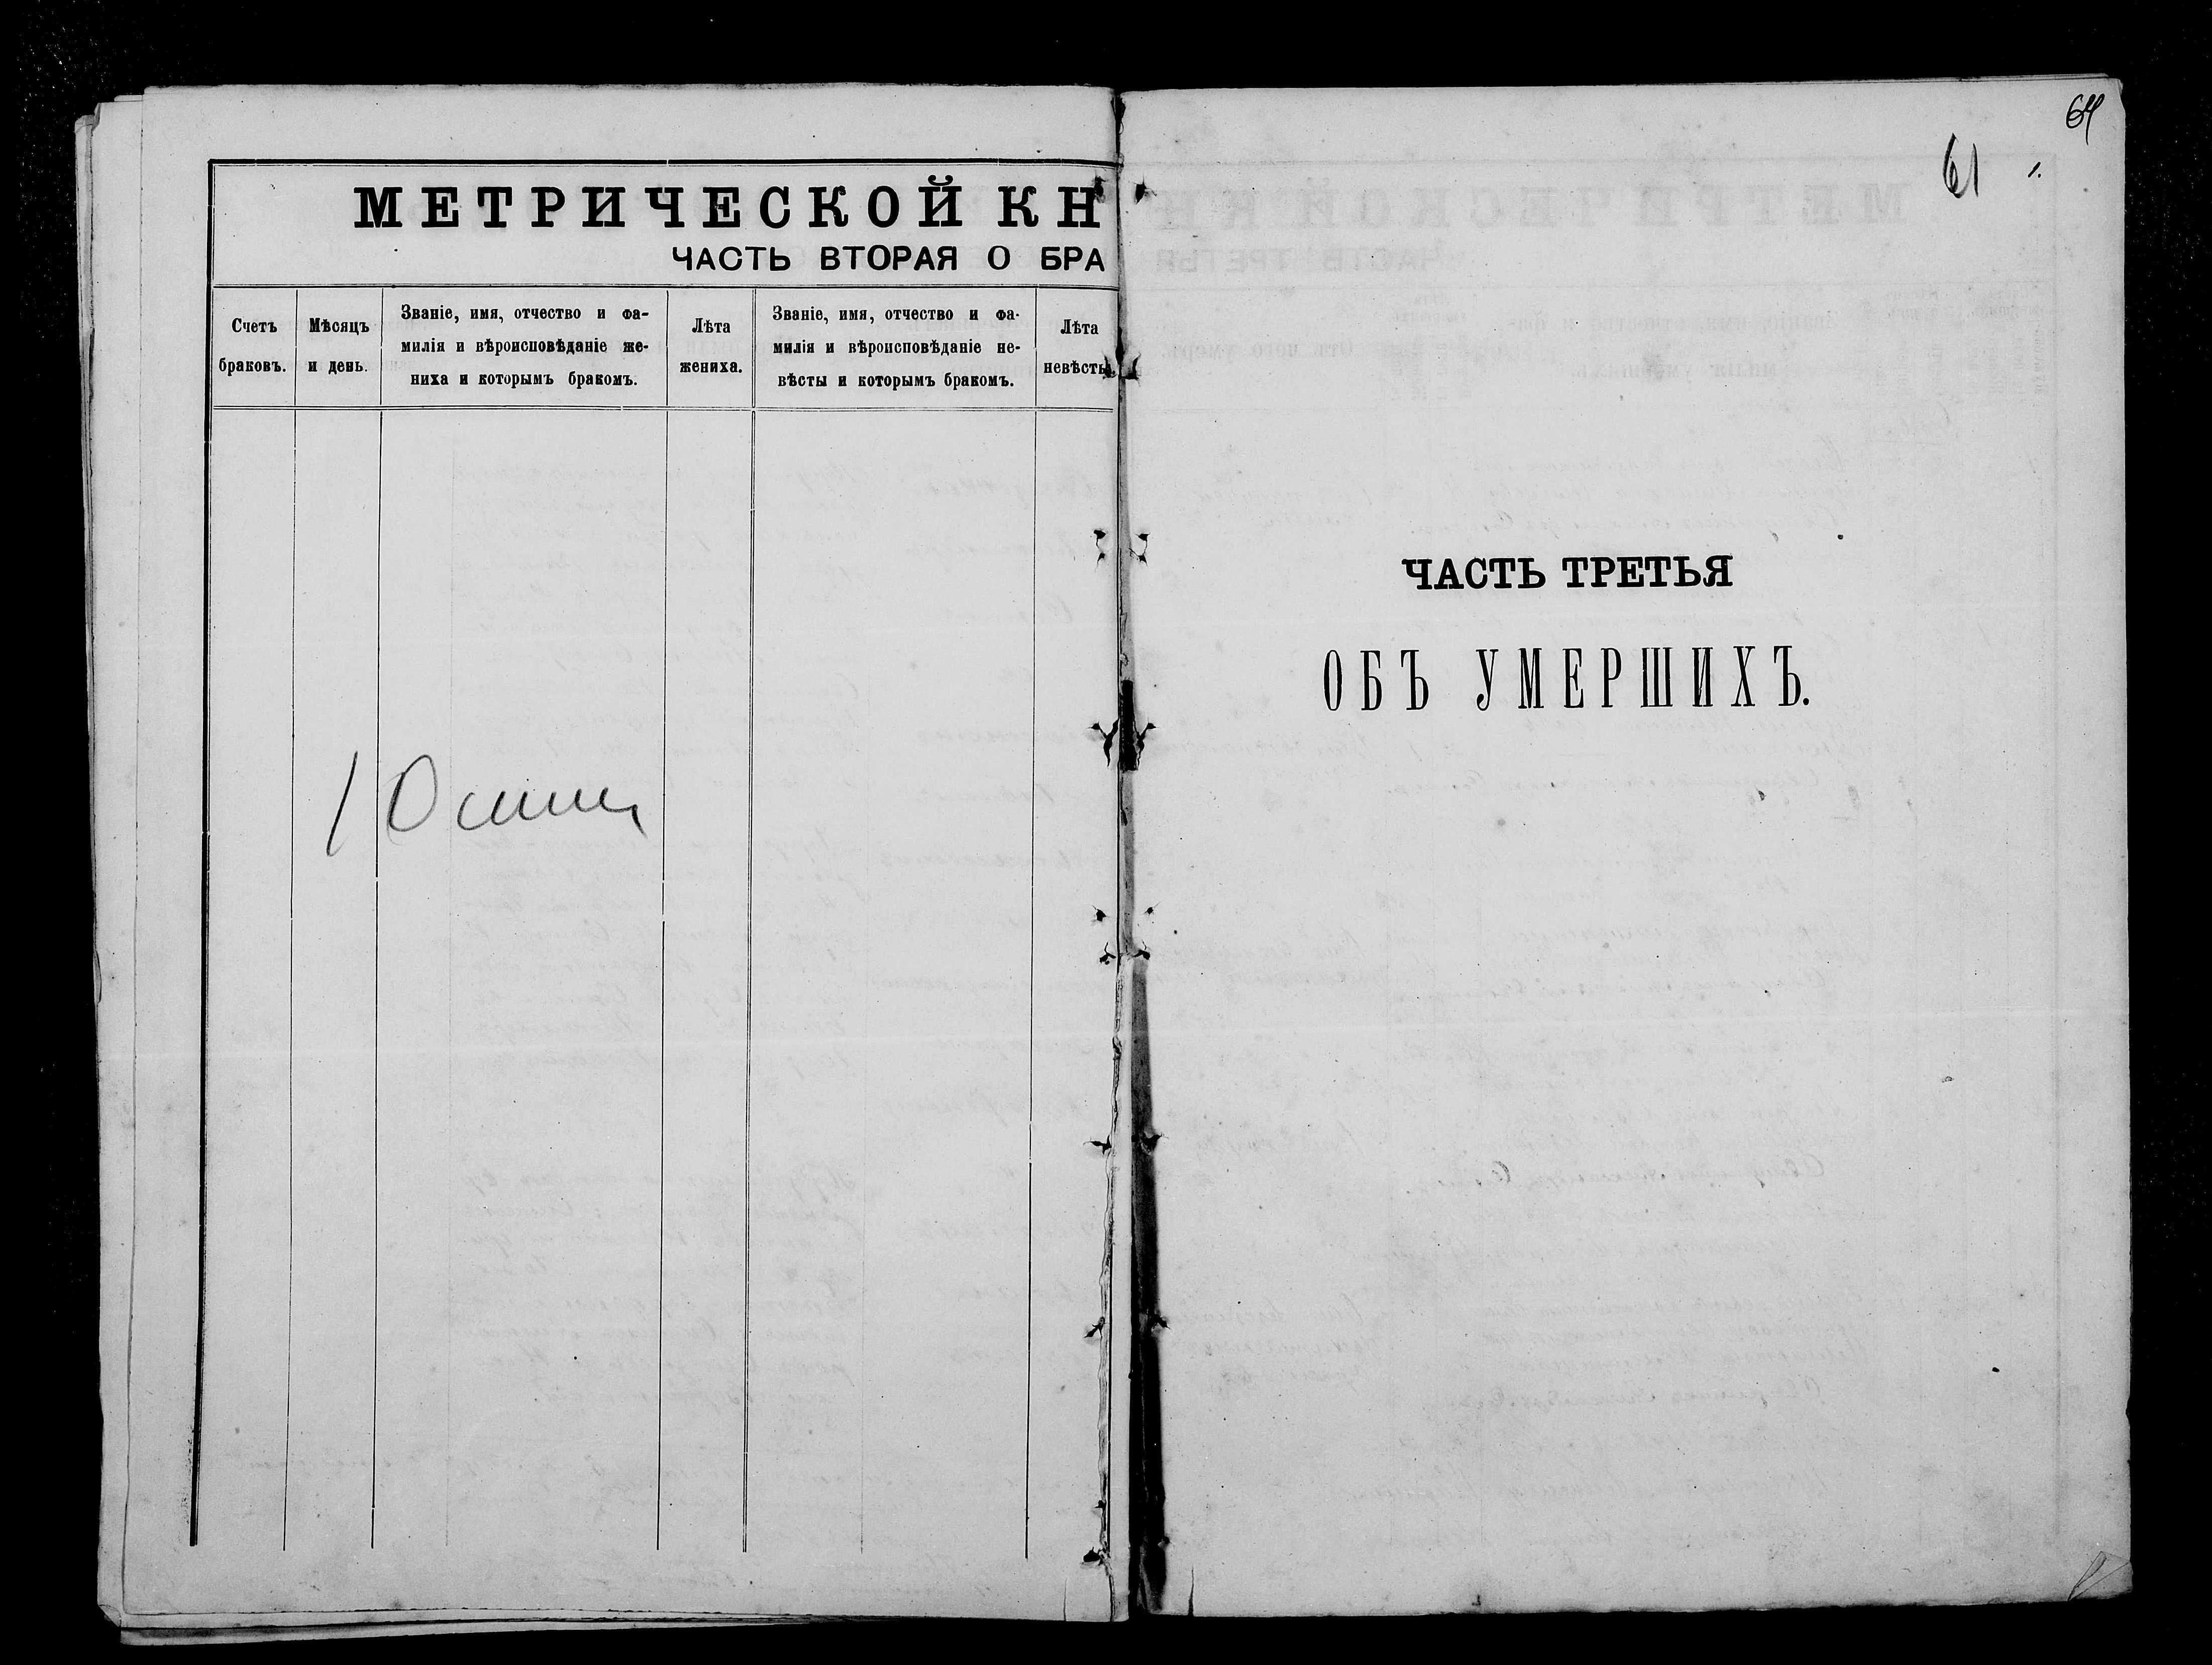 МЕТРИЧЕСКОЙ КН
ЧАСТЬ ВТОРАЯ О БРА
Счетъ браковъ.
Мѣсяцъ и день.
Званіе, имя, отчество и фа-
милія и вѣроисповѣданіе же-
ниха и которымъ бракомъ.
Лѣта жениха.
Званіе, имя, отчество и фа-
милія и вѣроисповѣданіе не-
вѣсты и которымъ бракомъ.
Лѣта невѣсты
64
61
1.
ЧАСТЬ ТРЕТЬЯ
ОБЪ УМЕРШИХЪ.